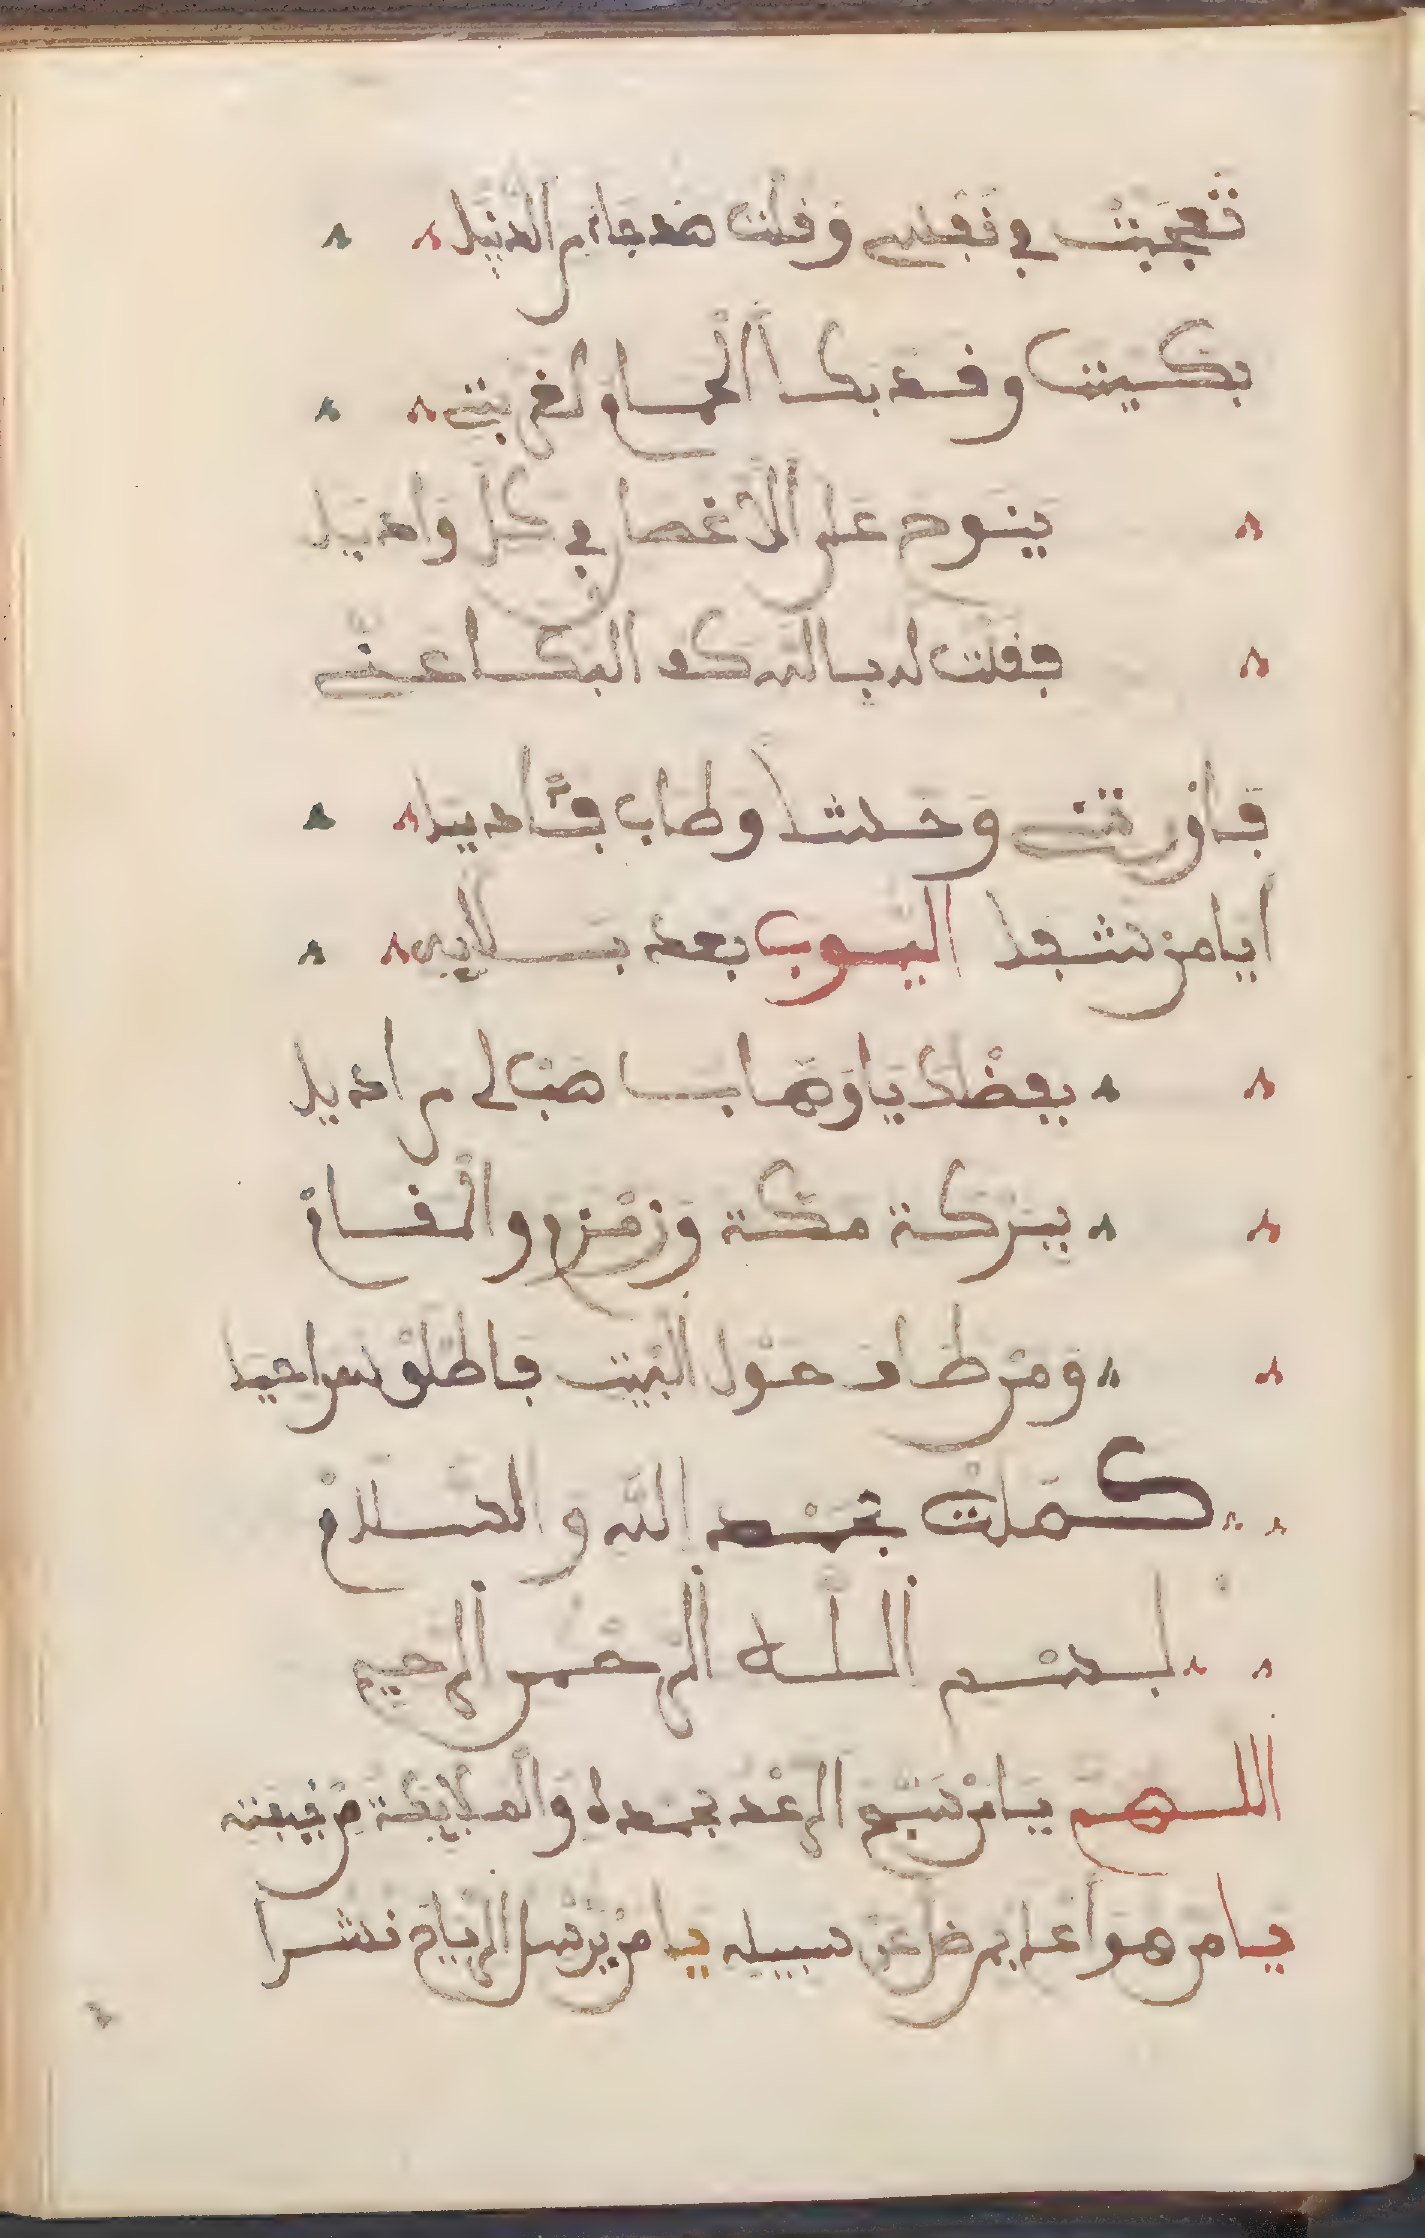 تعجبت في نفسي وقلت هذ جاء من الدنيا
بكيت وقد بكا الحمام لغربتي
ينوح على الأغصان في كل واديا
فقلت له بالله كف البكا عني
فأورثني وحشا وطاب فؤاديا
أيا من شفا أيوب بعد بلائه
بفضلك يا وهاب هب لي مراديا
ببركة مكة وزمزم والمقام
ومن طاف حول البيت فاطلق سراحيا
كملت بحمد الله والسلام
بسم الله الرحمن الرحيم
اللهم يا من يسبح الرعد بحمده والملائكة من خيفته
يا من هو أعلم بمن ضل عن سبيله يا من يرسل الرياح نشرا